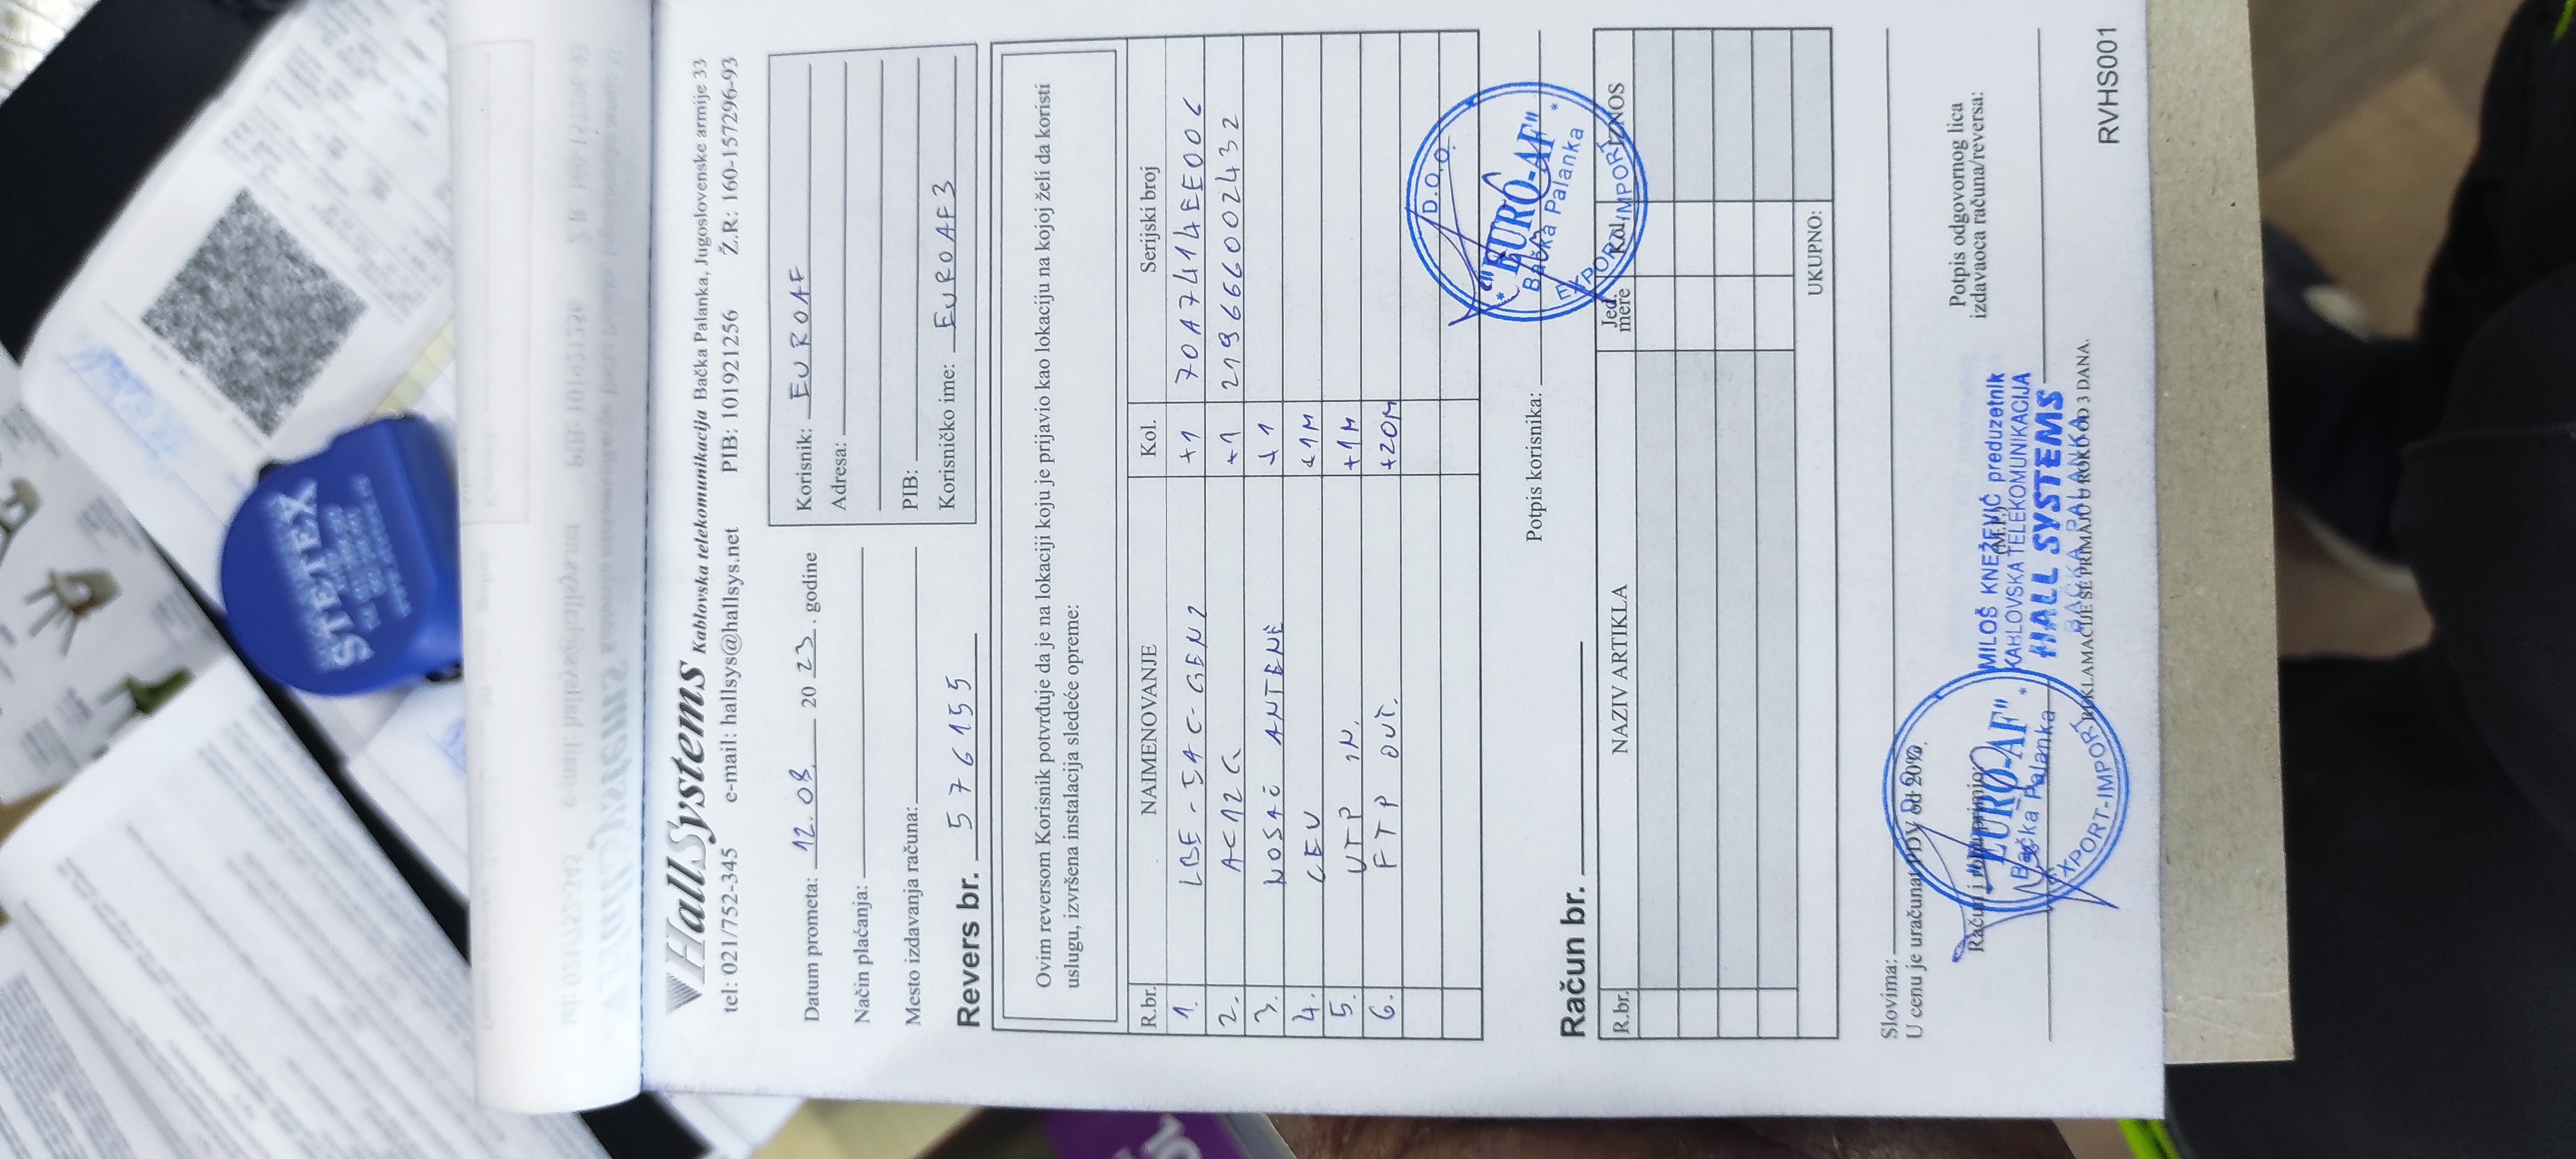 HallSystems Kablovska telekomunikacija Bačka Palanka, Jugoslovenske armije 33
tel: 021/752-345 e-mail: hallsys@hallsys.net PIB: 101921256 Ž.R: 160-157296-93
Datum prometa: 12.08. 2023. godine
Način plaćanja:
Mesto izdavanja računa:
Korisnik: EUROAF
Adresa:
PIB:
Korisničko ime: EUROAF3
Revers br. 576155
Ovim reversom Korisnik potvrđuje da je na lokaciji koju je prijavio kao lokaciju na kojoj želi da koristi
uslugu, izvršena instalacija sledeće opreme:
R.br. NAIMENOVANJE Kol. Serijski broj
1. LBE-5AC-GEN2 +1 70A7414EE006
2. AC12G +1 219666002432
3. NOSAČ ANTENE +1
4. CEV +1M
5. UTP IN. +1M
6. FTP OUT. +20M
Potpis korisnika:
D.O.O.
"EURO-AF"
Bačka Palanka
EXPORT-IMPORT
Račun br.
R.br. NAZIV ARTIKLA Jed. mere Kol. IZNOS
UKUPNO:
Slovima:
U cenu je uračunat PDV od 20%.
Račun i robu primio:
D.O.O.
"EURO-AF"
Bačka Palanka
EXPORT-IMPORT
(M.P.)
MILOŠ KNEŽEVIĆ preduzetnik
KABLOVSKA TELEKOMUNIKACIJA
HALL SYSTEMS
BAČKA PALANKA
Potpis odgovornog lica
izdavaoca računa/reversa:
REKLAMACIJE SE PRIMAJU U ROKU OD 3 DANA.
RVHS001
STETEX